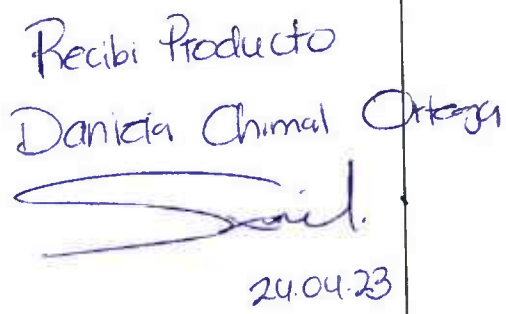 Recibi Producto
Daniela Chimal Ortega
24.04.23